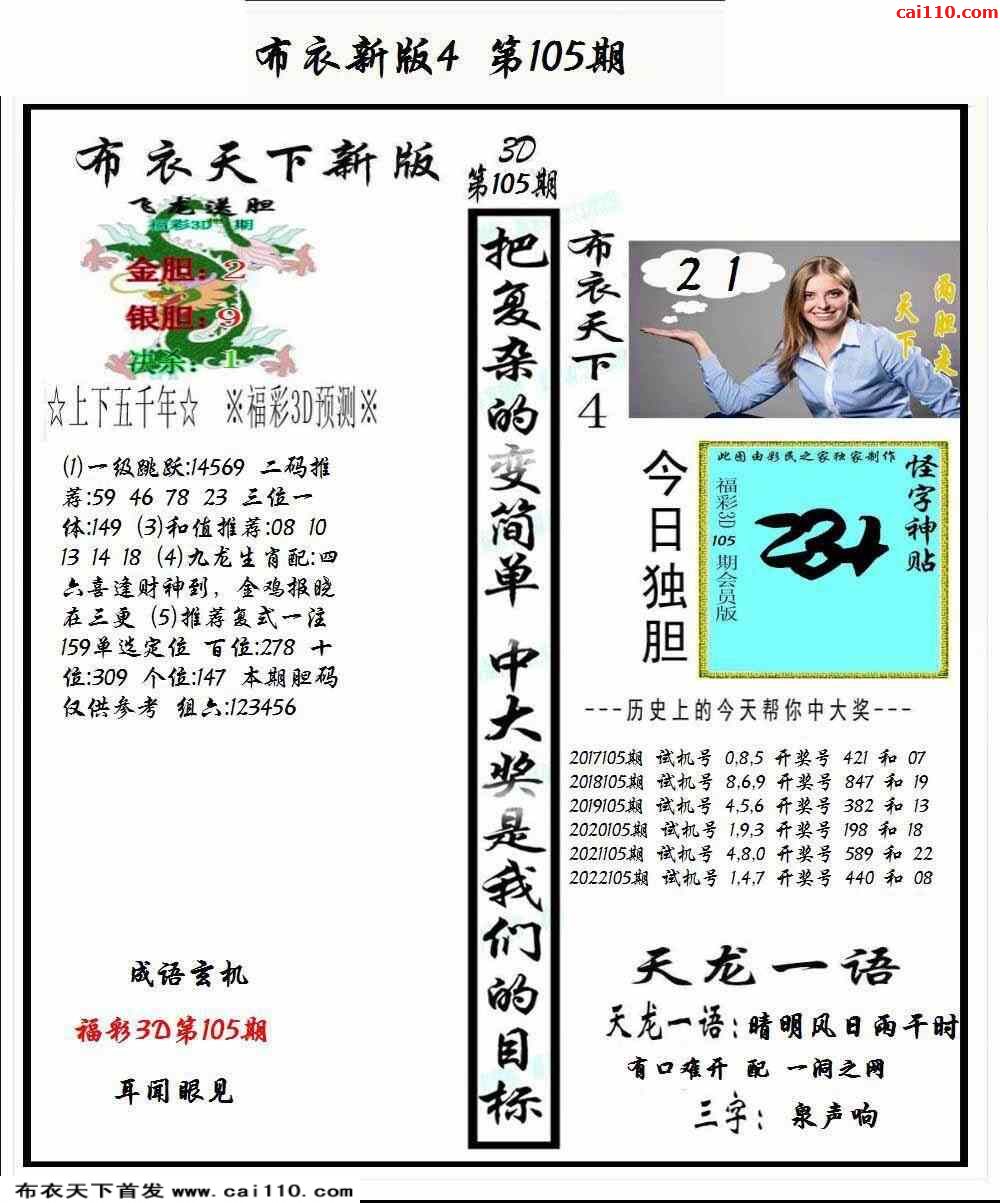 cai110.com
布衣新版4 第105期
布衣天下新版
飞龙送胆
福彩3D 期
金胆：2
银胆：9
决杀：1
☆上下五千年☆ ※福彩3D预测※
(1)一级跳跃:14569 二码推
荐:59 46 78 23 三位一
体:149 (3)和值推荐:08 10
13 14 18 (4)九龙生肖配:四
六喜逢财神到，金鸡报晓
在三更 (5)推荐复式一注
159单选定位 百位:278 十
位:309 个位:147 本期胆码
仅供参考 组六:123456
成语玄机
福彩3D第105期
耳闻眼见
3D
第105期
把复杂的变简单 中大奖是我们的目标
布衣天下4
2 1
两胆走
天下
今日独胆
此图由彩民之家独家制作
怪字神贴
福彩3D 105 期会员版
---历史上的今天帮你中大奖---
2017105期 试机号 0,8,5 开奖号 421 和 07
2018105期 试机号 8,6,9 开奖号 847 和 19
2019105期 试机号 4,5,6 开奖号 382 和 13
2020105期 试机号 1,9,3 开奖号 198 和 18
2021105期 试机号 4,8,0 开奖号 589 和 22
2022105期 试机号 1,4,7 开奖号 440 和 08
天龙一语
天龙一语：晴明风日雨干时
有口难开 配 一洞之网
三字： 泉声响
布衣天下首发 www.cai110.com